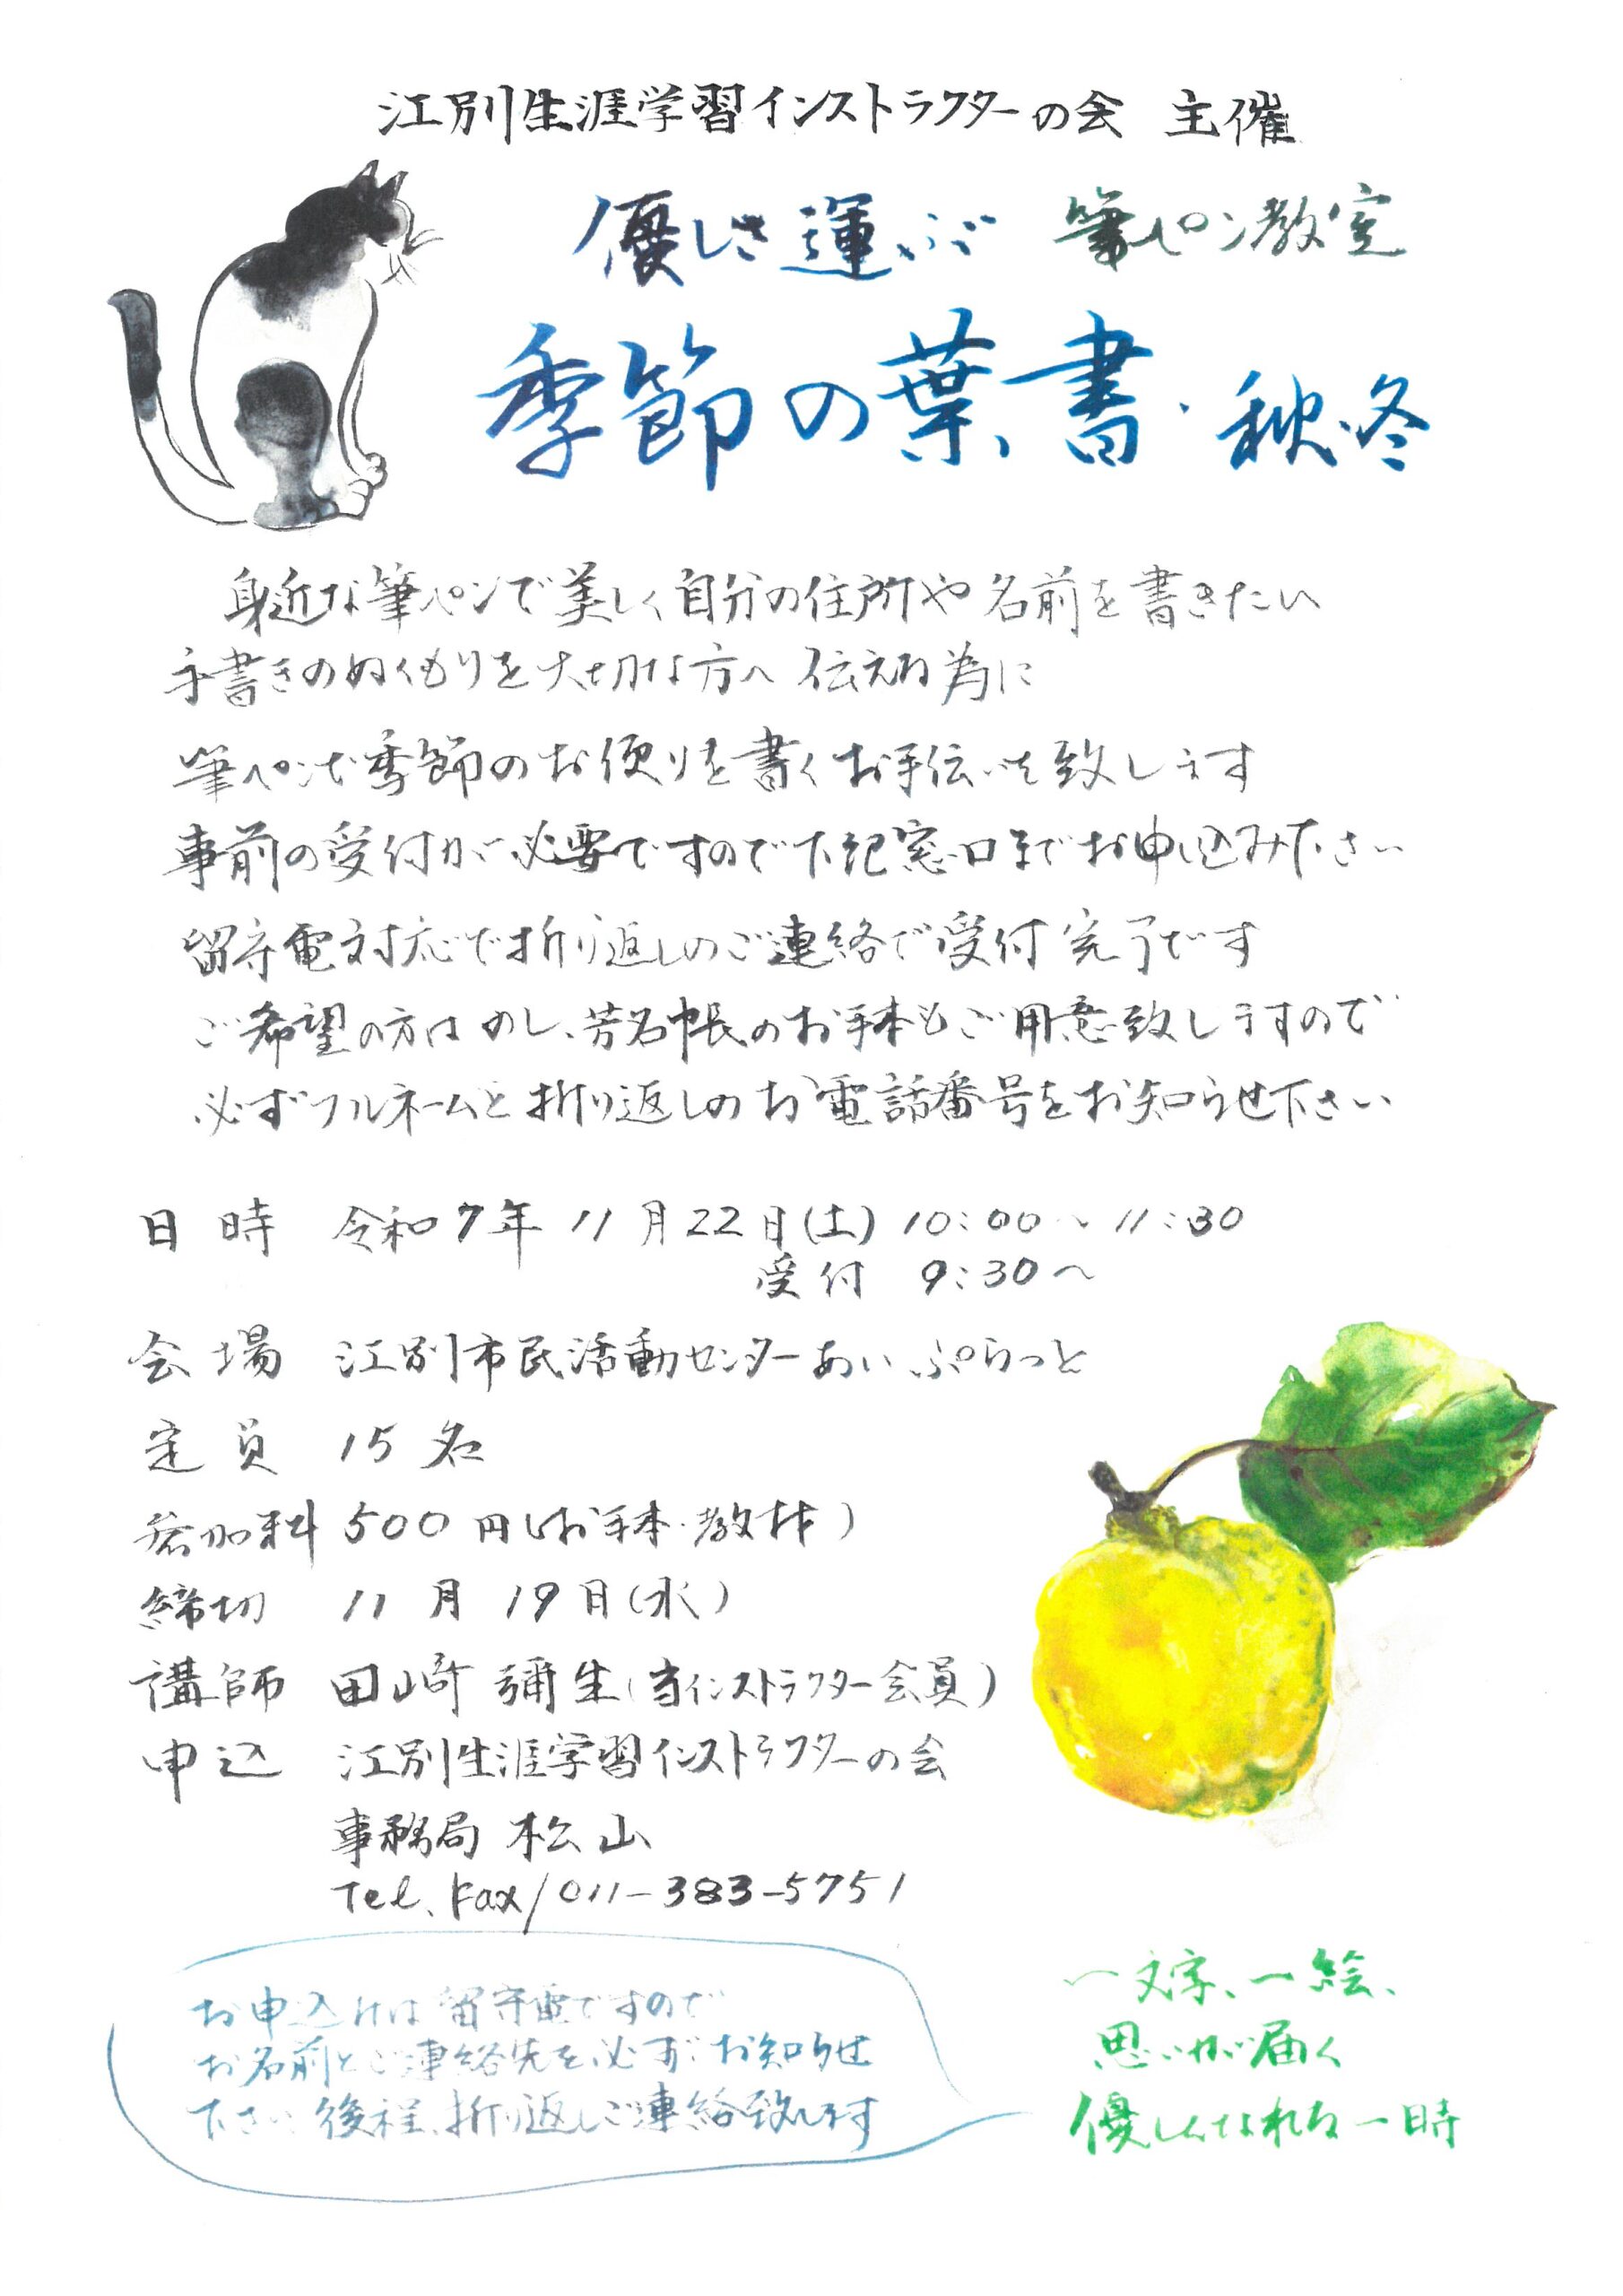 江別生涯学習インストラクターの会 主催
優しさ運ぶ 筆ペン教室
季節の葉書・秋冬
身近な筆ペンで美しく自分の住所や名前を書きたい
手書きのぬくもりを大切な方へ伝える為に
筆ペンで季節のお便りを書くお手伝いを致します
事前の受付が必要ですので下記窓口までお申し込み下さい
留守電対応で折り返しのご連絡で受付完了です
ご希望の方はのし、芳名帳のお手本もご用意致しますので
必ずフルネームと折り返しのお電話番号をお知らせ下さい
日時 令和7年11月22日(土) 10:00〜11:30
受付 9:30〜
会場 江別市民活動センターあいぷらっと
定員 15名
参加料 500円(お手本・教材)
締切 11月19日(水)
講師 田崎 彌生(当インストラクター会員)
申込 江別生涯学習インストラクターの会
事務局 松山
Tel、Fax/011-383-5751
お申込けは留守電ですので
お名前とご連絡先を必ずお知らせ
下さい 後程、折り返しご連絡致します
一文字、一絵、
思いが届く
優しくなれる一時